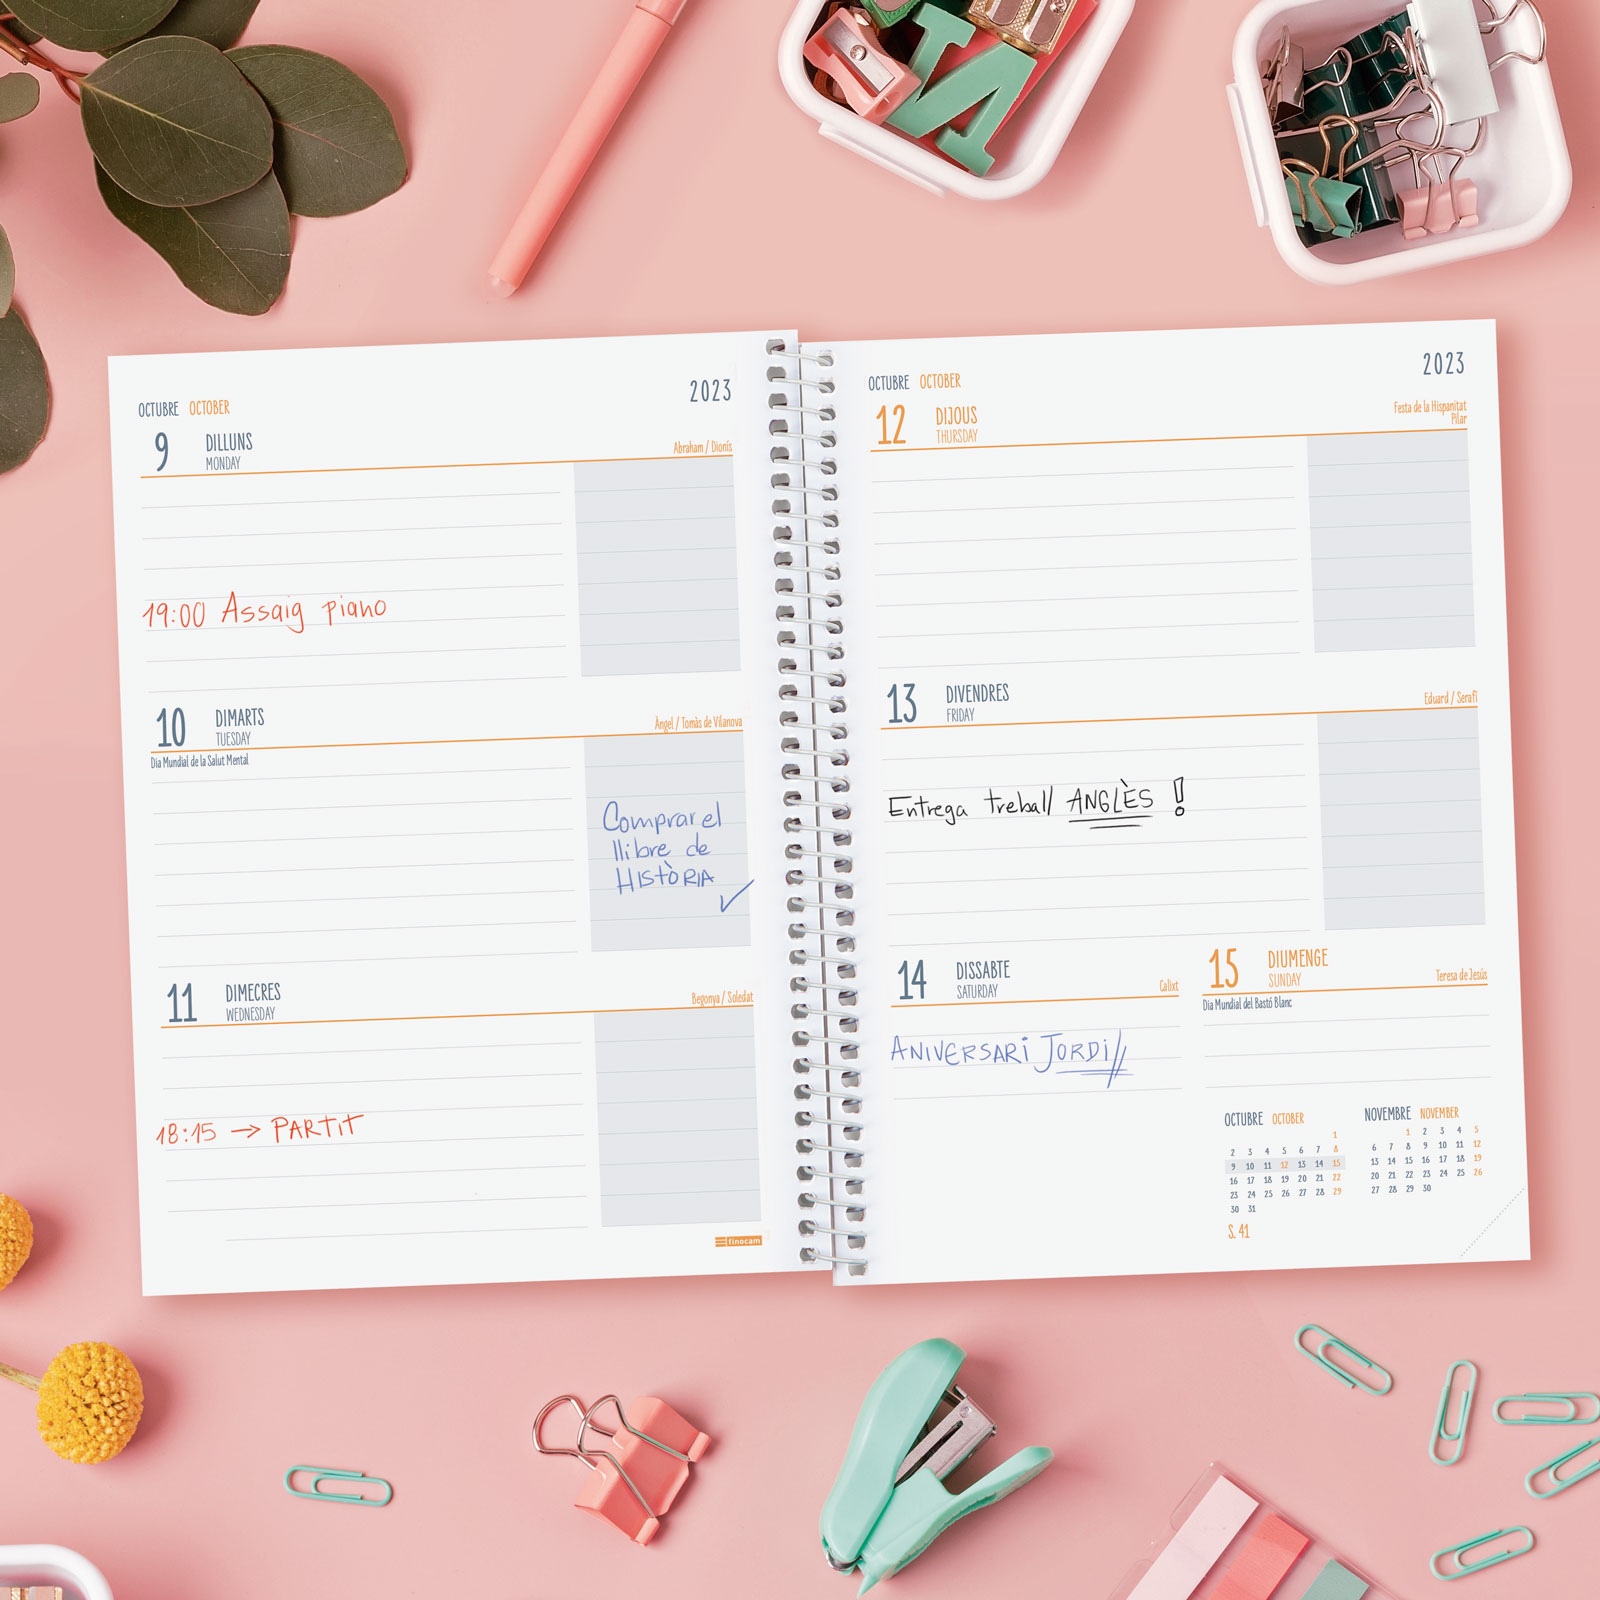 OCTUBRE OCTOBER
2023
9 DILLUNS
MONDAY
Abraham / Dionís
19:00 Assaig piano
10 DIMARTS
TUESDAY
Àngel / Tomàs de Vilanova
Dia Mundial de la Salut Mental
Comprar el
llibre de
HISTÒRIA
11 DIMECRES
WEDNESDAY
Begonya / Soledat
18:15 → PARTIT
finocam
OCTUBRE OCTOBER
2023
12 DIJOUS
THURSDAY
Festa de la Hispanitat
Pilar
13 DIVENDRES
FRIDAY
Eduard / Serafí
Entrega treball ANGLÈS !
14 DISSABTE
SATURDAY
Calixt
ANIVERSARI JORDI
15 DIUMENGE
SUNDAY
Teresa de Jesús
Dia Mundial del Bastó Blanc
OCTUBRE OCTOBER
1
2 3 4 5 6 7 8
9 10 11 12 13 14 15
16 17 18 19 20 21 22
23 24 25 26 27 28 29
30 31
S. 41
NOVEMBRE NOVEMBER
1 2 3 4 5
6 7 8 9 10 11 12
13 14 15 16 17 18 19
20 21 22 23 24 25 26
27 28 29 30